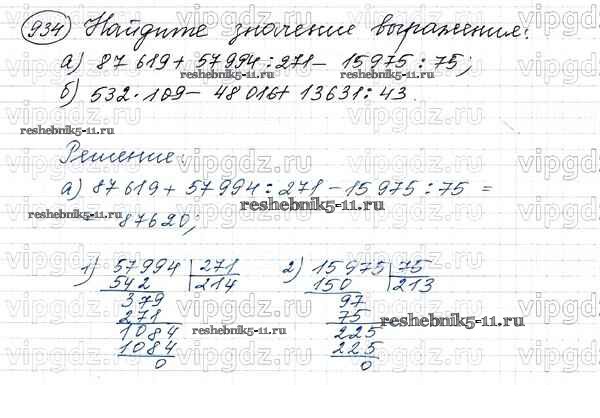 934) Найдите значение выражения:
а) 87 619 + 57994 : 271 – 15975 : 75;
б) 532 · 109 – 48 016 + 13631 : 43.
reshebnik5-11.ru
Решение:
а) 87 619 + 57 994 : 271 – 15 975 : 75 =
= 87620;
1) 57994 | 271 2) 15975 | 75
542 214 150 213
379 97
271 75
1084 225
1084 225
0 0
reshebnik5-11.ru
vipgdz.ru